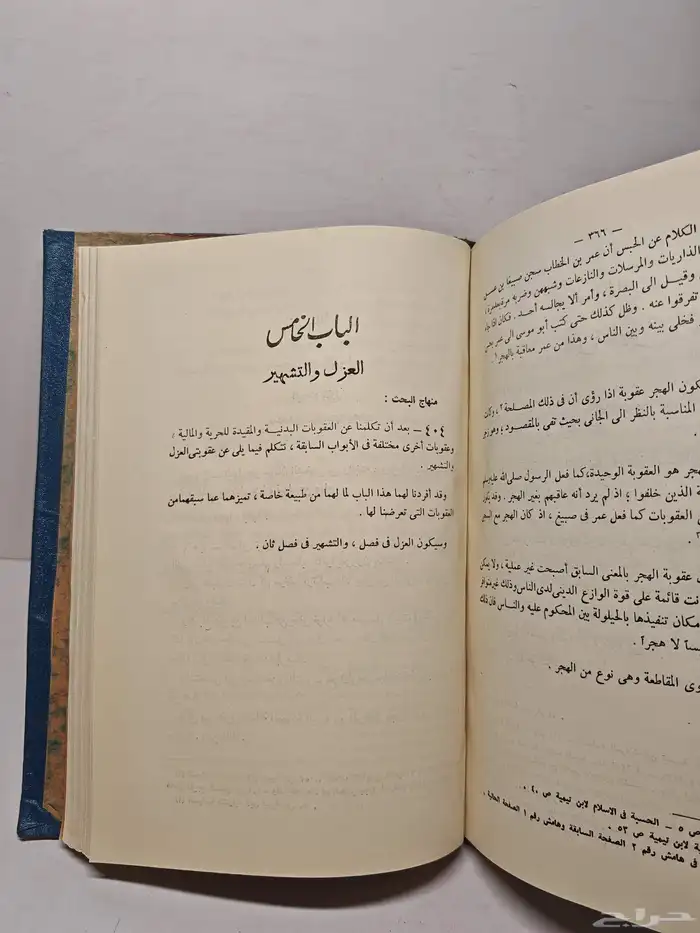 — ٣٦٦ —
الكلام عن الحبس أن عمر بن الخطاب سجن صبيغا بن عسل
الذاريات والمرسلات والنازعات وشبههن وضربه مرة بعد مرة ،
وقيل الى البصرة ، وأمر ألا يجالسه أحد . فكان
تفرقوا عنه . وظل كذلك حتى كتب أبو موسى الى عمر
فخلى بينه وبين الناس ، وهذا من عمر معاقبة بالهجر
كون الهجر عقوبة اذا رؤى أن فى ذلك المصلحة ، وكان
المناسبة بالنظر الى الجانى بحيث تفى بالمقصود
هجر هو العقوبة الوحيدة، كما فعل الرسول صلى الله عليه وسلم
ة الذين خلفوا ؛ اذ لم يرد أنه عاقبهم بغير الهجر . وقد يكون
العقوبات كما فعل عمر فى صبيغ ، اذ كان الهجر مع
عقوبة الهجر بالمعنى السابق أصبحت غير عملية ، ولا يمكن
نت قائمة على قوة الوازع الدينى لدى الناس وذلك غير متوافر
مكان تنفيذها بالحيلولة بين المحكوم عليه والناس فان ذلك
سا لا هجراً .
وى المقاطعة وهى نوع من الهجر .
ص ٥ — الحسبة فى الاسلام لابن تيمية ص ٤٠ .
ية لابن تيمية ص ٥٣ .
فى هامش رقم ٢ الصفحة السابقة وهامش رقم ١ الصفحة الحالية .
الباب الخامس
العزل والتشهير
منهاج البحث :
٤٠٤ — بعد أن تكلمنا عن العقوبات البدنية والمقيدة للحرية والمالية ،
وعقوبات أخرى مختلفة فى الأبواب السابقة ، نتكلم فيما يلى عن عقوبتى العزل
والتشهير .
وقد أفردنا لهما هذا الباب لما لهما من طبيعة خاصة ، تميزهما عما سبقهما من
العقوبات التى تعرضنا لها .
وسيكون العزل فى فصل ، والتشهير فى فصل ثان .
حراج